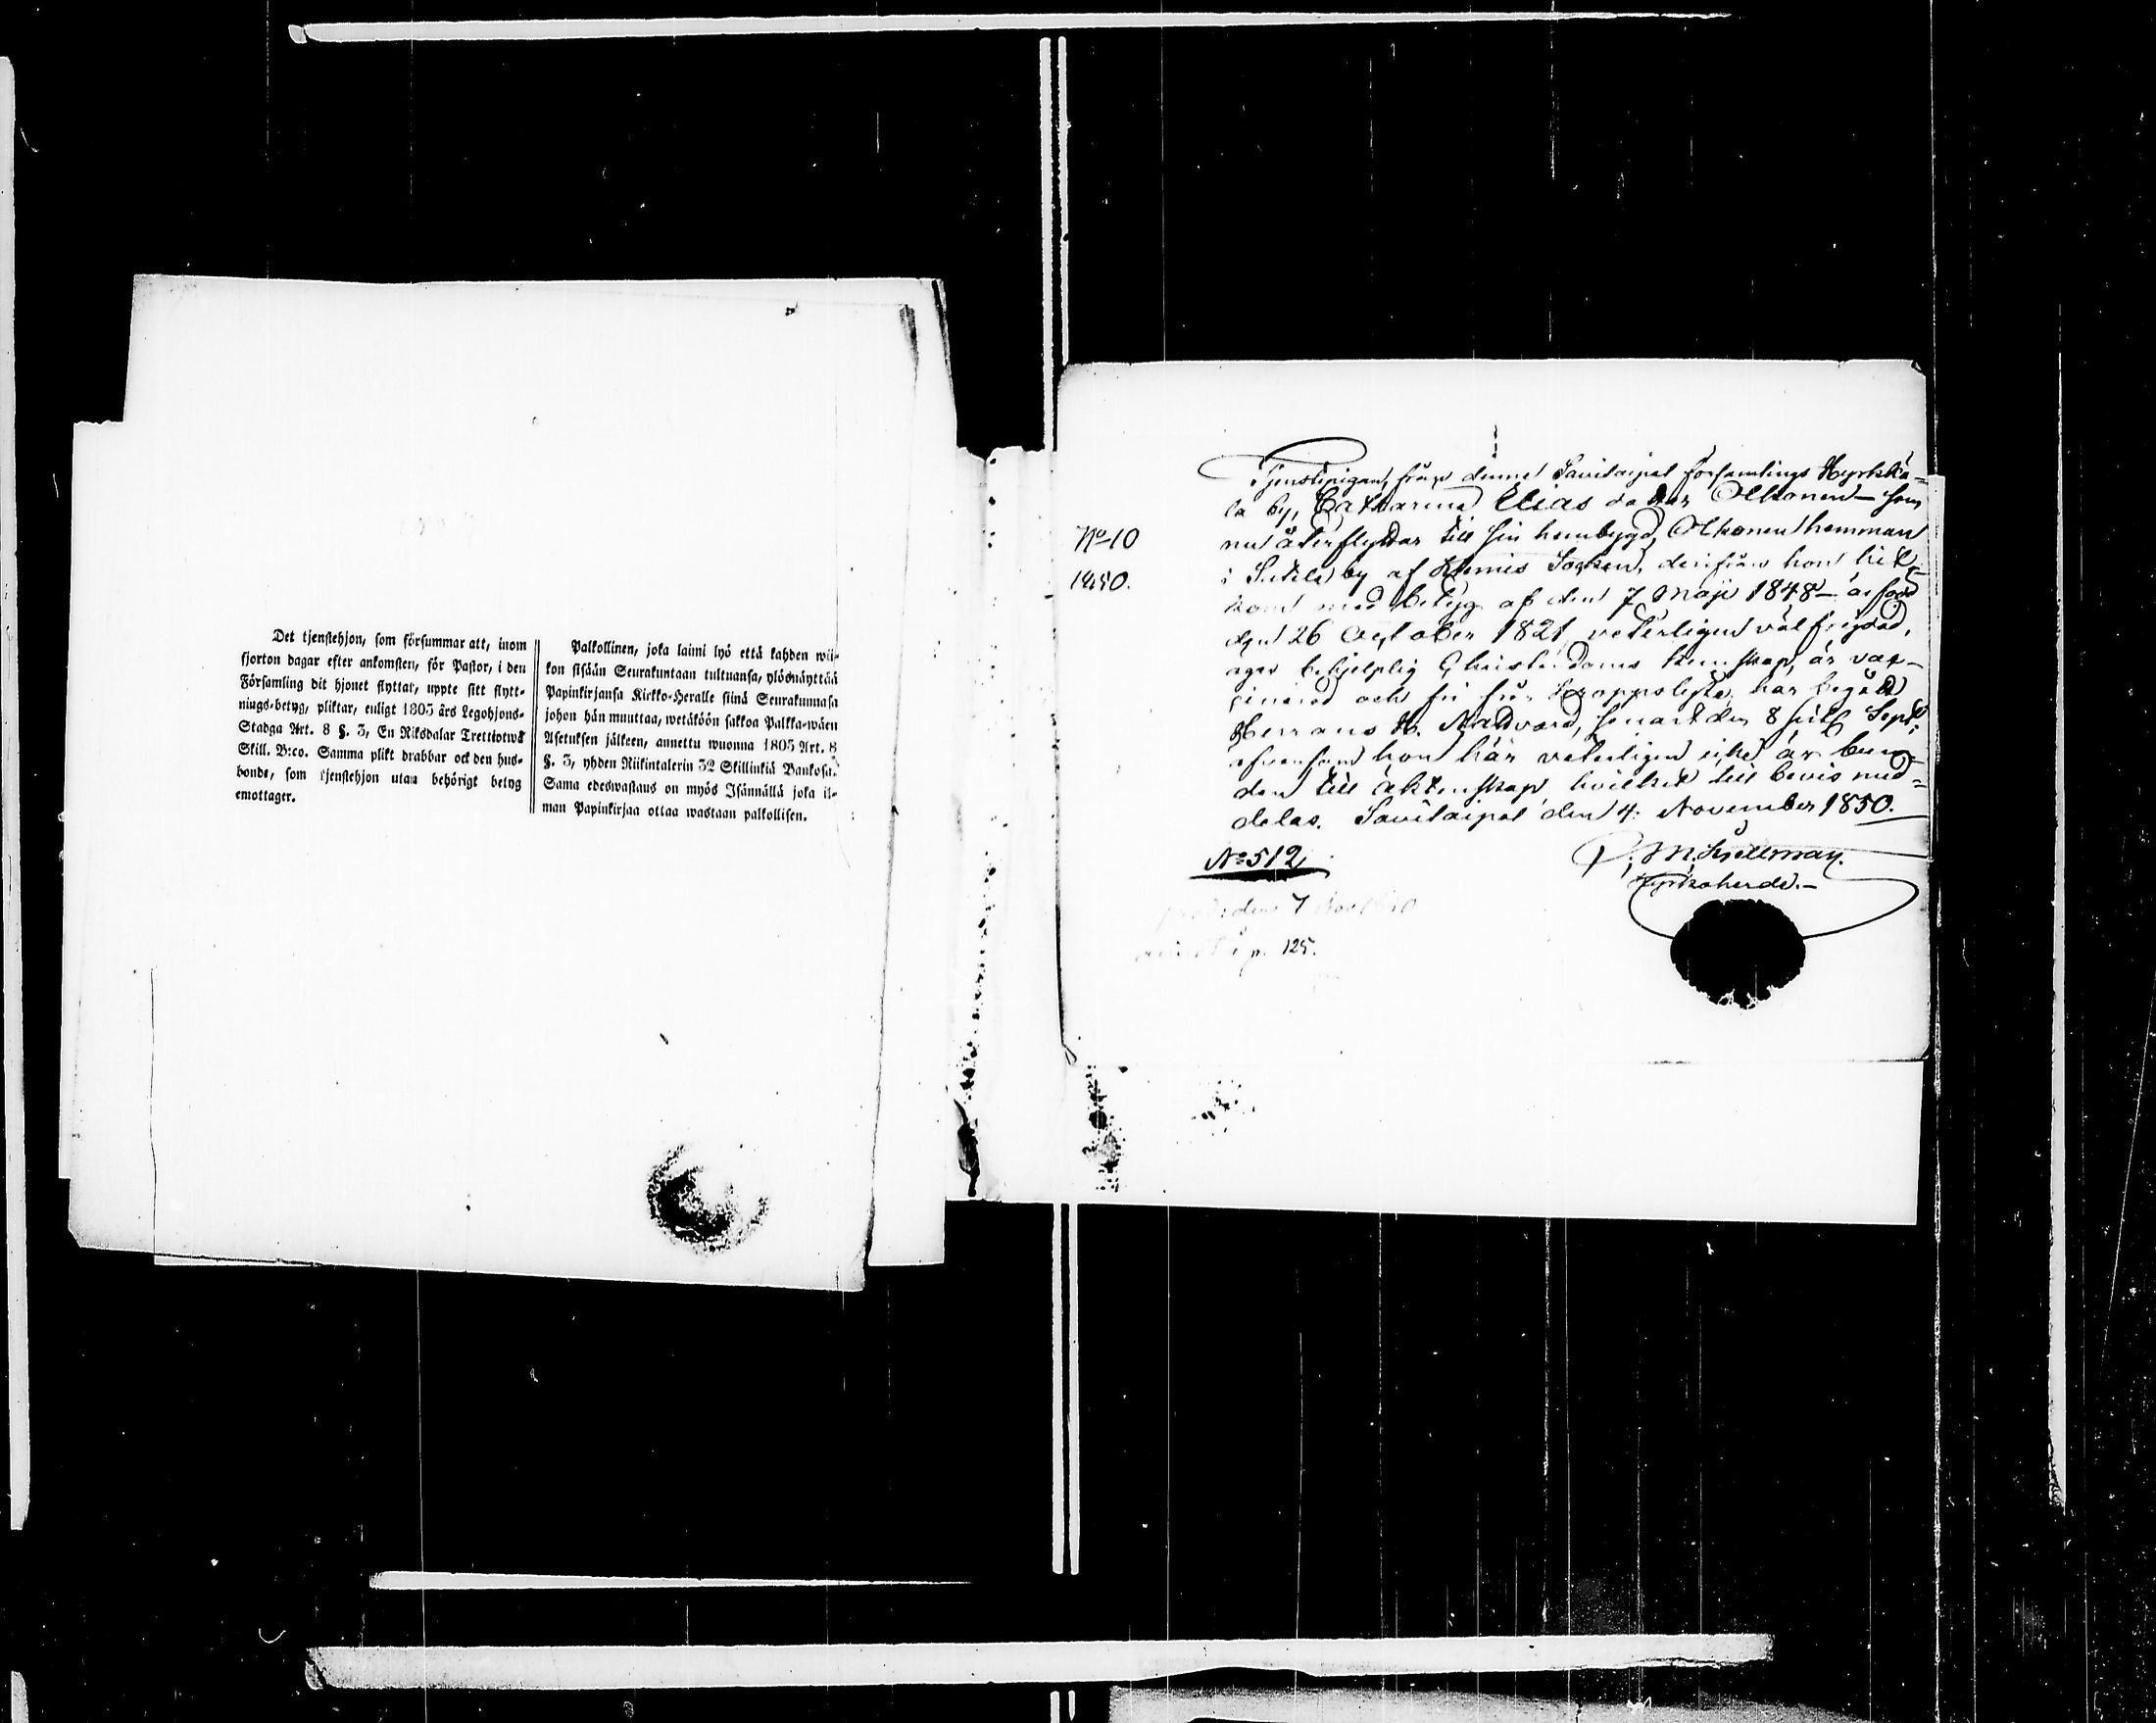 Det tjenstehjon, som försummar att, inom
fjorton dagar efter ankomsten, för Pastor, i den
Församling dit hjonet flyttat, uppte sitt flytt-
nings-betyg, pliktar, enligt 1805 års Legohjons-
Stadga Art. 8 §. 3, En Riksdalar Trettiotwå
Skill. B:co. Samma plikt drabbar ock den hus-
bonde, som tjenstehjon utan behörigt betyg
emottager.
Palkollinen, joka laimi lyö että kahden wii-
kon sisään Seurakuntaan tultuansa, ylösnäyttää
Papinkirjansa Kirkko-Heralle siinä Seurakunnasa
johon hän muuttaa, wetäköön sakkoa Palkka-wäen
Asetuksen jälkeen, annettu wuonna 1805 Art. 8
§. 3, yhden Riikintalerin 32 Skillinkiä Bankosa.
Sama edeswastaus on myös Isännällä joka il-
man Papinkirjaa ottaa wastaan palkollisen.
No 10
1850.
Tjenstepigan, från denna Savitaipal församlings Hyrkkä-
la by, Catharina Elias dotter Olkonen – som
nu återflyttar till sin hembygd, Olkonens hemman
i by af Klemis Socken, derifrån hon hit
kom med betyg af den 7 Maji 1848 – är född
den 26 October 1821, veterligen välfrejdad,
äger behjelplig Christendoms kunskap, är vac-
cinerad och fri från kroppslyte, har begått
Herrans H. Nattvard, senast den 8 sistl. Sept.
afven som hon här veterligen icke är bun-
den till äktenskap hvilket till bevis med-
delas. Savitaipal den 4. November 1850.
No 512.
Kyrkoherde. –
den 7 Nov 1850
i p. 125.